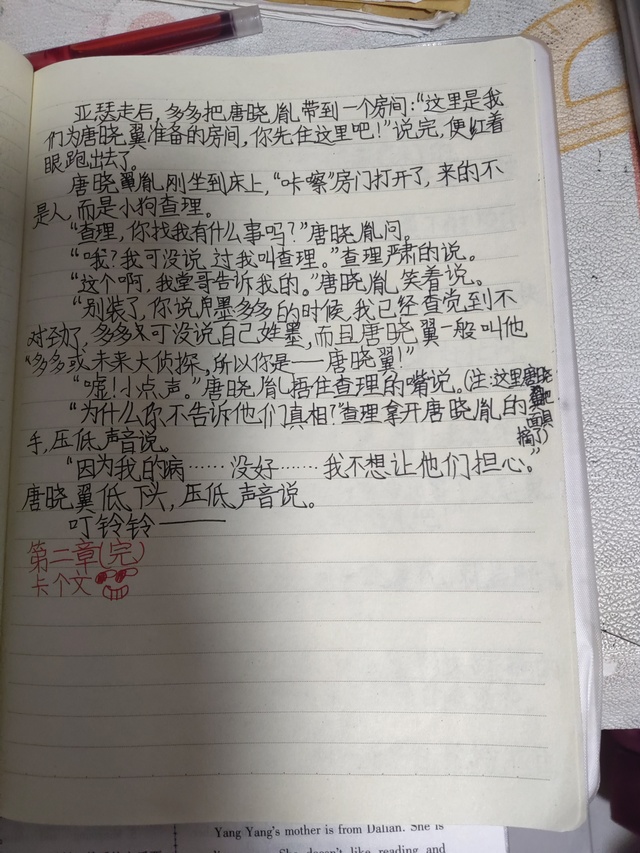 亚瑟走后，多多把唐晓胤带到一个房间：“这里是我
们为唐晓翼准备的房间，你先住这里吧！”说完，便红着
眼跑出去了。
唐晓胤刚坐到床上，“咔嚓”房门打开了，来的不
是人，而是小狗查理。
“查理，你找我有什么事吗？”唐晓胤问。
“哦？我可没说过我叫查理。”查理严肃的说。
“这个啊，我堂哥告诉我的。”唐晓胤笑着说。
“别装了，你说墨多多的时候，我已经查觉到不
对劲了，多多可没说自己姓墨，而且唐晓翼一般叫他
“多多或未来大侦探，所以你是——唐晓翼！”
“嘘！小点声。”唐晓胤捂住查理的嘴说。（注：这里唐晓
翼把
面具
摘了）
“为什么你不告诉他们真相？”查理拿开唐晓胤的
手，压低声音说。
“因为我的病……没好……我不想让他们担心。”
唐晓翼低下头，压低声音说。
叮铃铃——
第二章（完）
卡个文
Yang Yang's mother is from Dalian. She is
She doesn't like reading and